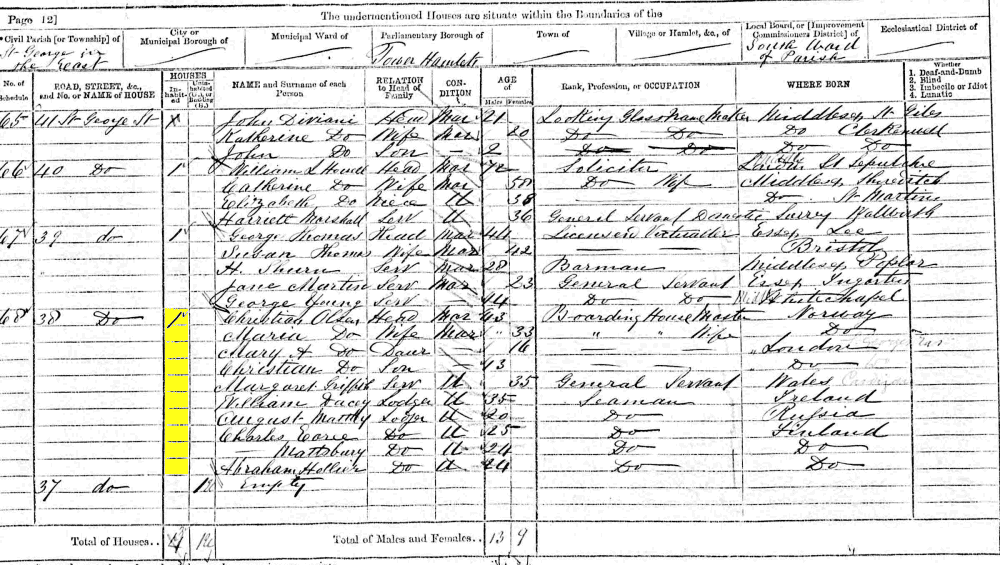 Page 12]
The undermentioned Houses are situate within the Boundaries of the
Civil Parish [or Township] of
St George in the East
City or Municipal Borough of
Municipal Ward of
Parliamentary Borough of
Tower Hamlets
Town of
Village or Hamlet, &c., of
Local Board, or [Improvement Commissioners District] of
South Ward of Parish
Ecclesiastical District of
No. of Schedule
ROAD, STREET, &c., and No. or NAME of HOUSE
HOUSES
Inhabited
Uninhabited (U.), or Building (B.)
NAME and Surname of each Person
RELATION to Head of Family
CONDITION
AGE of
Males
Females
Rank, Profession, or OCCUPATION
WHERE BORN
Whether
1. Deaf-and-Dumb
2. Blind
3. Imbecile or Idiot
4. Lunatic
65 41 St George St X John Diviani Head Mar 21 Looking Glass Frame Maker Middlesex St Giles
Katherine Do Wife Mar 20 Do Do Do Clerkenwell
John Do Son — 2 Do Do Do Do
66 40 Do 1 William S Howell Head Mar 72 Solicitor London St Sepulchre
Catherine Do Wife Mar 58 Do Wife Middlesex Shoreditch
Elizabeth Do Niece U 38 Do St Martins
Harriett Marshall Serv U 36 General Servant Domestic Surrey Walworth
67 39 do 1 George Thomas Head Mar 44 Licensed Victualler Essex Lee
Susan Thomas Wife Mar 42 Bristol
H. Serv Mar 28 Barman Middlesex Poplar
Jane Martin Serv Mar 23 General Servant Essex
George Young Serv — 14 Do Do Whitechapel
68 38 Do 1 Christian Olsen Head Mar 43 Boarding House Master Norway
Maria Do Wife Mar 33 " " Wife Do
Mary A Do Daur — 16 — London
Christian Do Son — 13 — Do
Margaret Serv U 35 General Servant Wales
William Dacey Lodger U 35 Seaman Ireland
August Lodger U 20 Do Russia
Charles Do U 25 Do Finland
— Mattsbury Do U 24 Do Do
Abraham Do U 24 Do Do
37 do Empty
Total of Houses..
Total of Males and Females.. 13 9